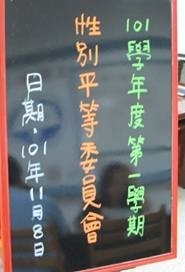 101學年度第一學期
性別平等委員會
日期:101年11月8日